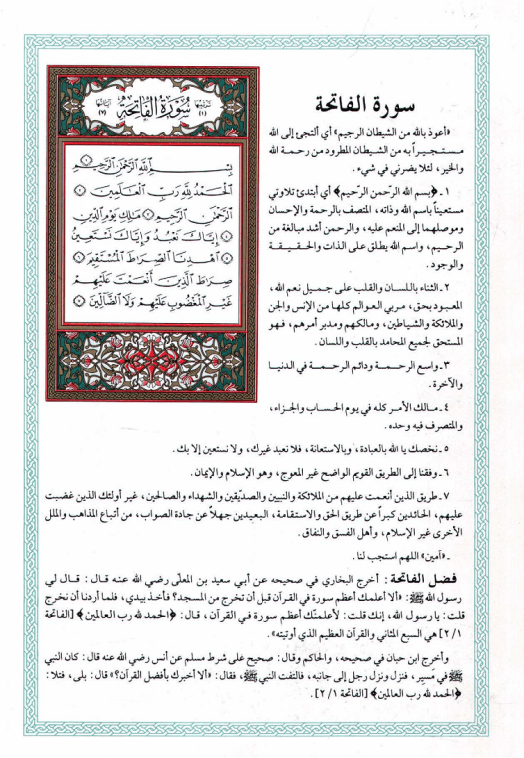 ترتيبها (١) سُورَةُ الفَاتِحَةِ آياتها (٧)
بِسْمِ اللَّهِ الرَّحْمَٰنِ الرَّحِيمِ ١
الْحَمْدُ لِلَّهِ رَبِّ الْعَالَمِينَ ٢
الرَّحْمَٰنِ الرَّحِيمِ ٣ مَالِكِ يَوْمِ الدِّينِ
٤ إِيَّاكَ نَعْبُدُ وَإِيَّاكَ نَسْتَعِينُ
٥ اهْدِنَا الصِّرَاطَ الْمُسْتَقِيمَ ٦
صِرَاطَ الَّذِينَ أَنْعَمْتَ عَلَيْهِمْ
غَيْرِ الْمَغْضُوبِ عَلَيْهِمْ وَلَا الضَّالِّينَ ٧
سورة الفاتحة
«أعوذ بالله من الشيطان الرجيم» أي ألتجئ إلى الله
مستجيراً به من الشيطان المطرود من رحمة الله
والخير، لئلا يضرني في شيء.
١ـ ﴿بسم الله الرّحمن الرّحيم﴾ أي أبتدئ تلاوتي
مستعيناً باسم الله وذاته، المتصف بالرحمة والإحسان
وموصلهما إلى المنعم عليه، والرحمن أشد مبالغة من
الرحيم، واسم الله يطلق على الذات والحقيقة
والوجود.
٢ـ الثناء باللسان والقلب على جميل نعم الله،
المعبود بحق، مربي العوالم كلها من الإنس والجن
والملائكة والشياطين، ومالكهم ومدبر أمرهم، فهو
المستحق لجميع المحامد بالقلب واللسان.
٣ـ واسع الرحمة ودائم الرحمة في الدنيا
والآخرة.
٤ـ مالك الأمر كله في يوم الحساب والجزاء،
والمتصرف فيه وحده.
٥ـ نخصك يا الله بالعبادة، وبالاستعانة، فلا نعبد غيرك، ولا نستعين إلا بك.
٦ـ وفقنا إلى الطريق القويم الواضح غير المعوج، وهو الإسلام والإيمان.
٧ـ طريق الذين أنعمت عليهم من الملائكة والنبيين والصدّيقين والشهداء والصالحين، غير أولئك الذين غضبت
عليهم، الحائدين كبراً عن طريق الحق والاستقامة، البعيدين جهلاً عن جادة الصواب، من أتباع المذاهب والملل
الأخرى غير الإسلام، وأهل الفسق والنفاق.
ـ «آمين» اللهم استجب لنا.
فضل الفاتحة: أخرج البخاري في صحيحه عن أبي سعيد بن المعلّى رضي الله عنه قال: قال لي
رسول الله ﷺ: «ألا أعلمك أعظم سورة في القرآن قبل أن تخرج من المسجد؟ فأخذ بيدي، فلما أردنا أن نخرج
قلت: يا رسول الله، إنك قلت: لأعلمنّك أعظم سورة في القرآن، قال: ﴿الحمد لله رب العالمين﴾ [الفاتحة
٢/١] هي السبع المثاني والقرآن العظيم الذي أوتيته».
وأخرج ابن حبان في صحيحه، والحاكم وقال: صحيح على شرط مسلم عن أنس رضي الله عنه قال: كان النبي
ﷺ في مسير، فنزل ونزل رجل إلى جانبه، فالتفت النبي ﷺ، فقال: «ألا أخبرك بأفضل القرآن؟» قال: بلى، فتلا:
﴿الحمد لله رب العالمين﴾ [الفاتحة ٢/١].